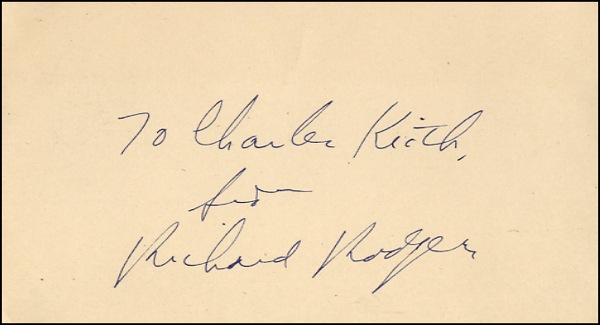 To Charles Keith,
from
Richard Rodgers